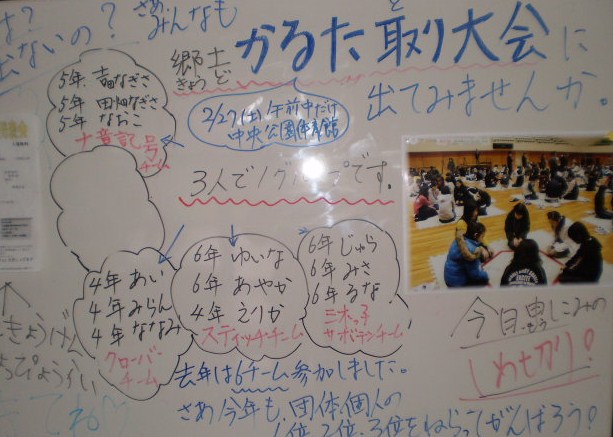 さあみんなも
出ないの?
郷土
きょうど
かるた取り大会に
と
出てみませんか。
2/27(土)午前中だけ
中央公園体育館
5年. なぎさ
5年 田畑なぎさ
5年 なおこ
ナ音記号
チーム
3人で1グループです。
4年 あい
4年 みらん
4年 ななみ
クローバー
チーム
6年 ゆいな
6年 あやか
4年 えりか
スティッチチーム
6年 じゅら
6年 みさ
6年 るな
三木っ子
サボテンチーム
今日申しこみの
しめ切り!
去年は6チーム参加しました。
さあ今年も、団体、個人の
1位、2位、3位をねらってがんばろう!